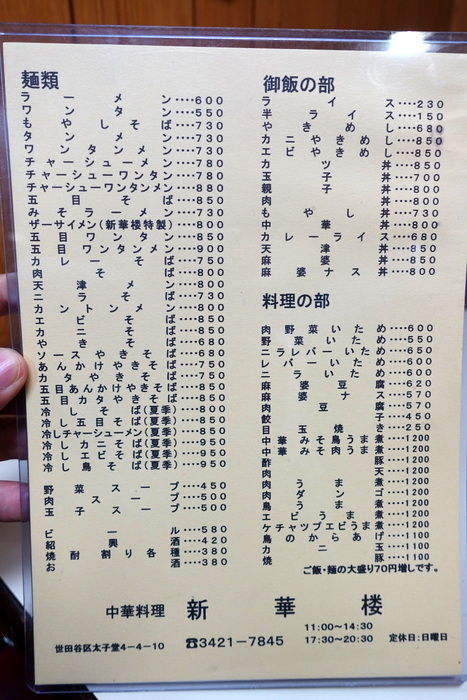 麺類
ラーメン‥‥600
ワンタン‥‥550
もやしそば‥‥730
タンメン‥‥730
ワンタンメン‥‥730
チャーシューメン‥‥780
チャーシューワンタン‥‥780
チャーシューワンタンメン‥‥880
五目そば‥‥850
みそラーメン‥‥730
ザーサイメン(新華楼特製)‥‥800
五目ワンタン‥‥850
五目ワンタンメン‥‥900
カレーそば‥‥750
肉そば‥‥800
天津メン‥‥800
ニラそば‥‥730
カントンメン‥‥800
エビそば‥‥850
カニそば‥‥850
やきそば‥‥680
ソースやきそば‥‥680
あんかけやきそば‥‥750
カタやきそば‥‥750
五目あんかけやきそば‥‥850
五目カタやきそば‥‥850
冷しそば(夏季)‥‥800
冷し五目そば(夏季)‥‥850
冷しチャーシューメン(夏季)‥‥850
冷しカニそば(夏季)‥‥950
冷しエビそば(夏季)‥‥950
冷し鳥そば(夏季)‥‥950
野菜スープ‥‥450
肉スープ‥‥500
玉子スープ‥‥500
ビール‥‥580
紹興酒‥‥420
焼酎割り各種‥‥380
お酒‥‥380
御飯の部
ライス‥‥230
半ライス‥‥150
やきめし‥‥680
カニやきめし‥‥850
エビやきめし‥‥850
カツ丼‥‥850
玉子丼‥‥700
親子丼‥‥800
肉丼‥‥800
もやし丼‥‥730
中華丼‥‥800
カレーライス‥‥680
天津丼‥‥850
麻婆丼‥‥850
麻婆ナス丼‥‥800
料理の部
肉野菜いため‥‥600
野菜いため‥‥550
ニラレバーいため‥‥650
レバーいため‥‥550
ニラいため‥‥600
麻婆豆腐‥‥620
麻婆ナス‥‥570
肉豆腐‥‥570
餃子‥‥450
目玉焼き‥‥250
中華みそ鳥うま煮‥‥1200
中華みそ肉うま煮‥‥1200
酢豚‥‥1200
肉天‥‥1200
肉うま煮‥‥1200
肉ダンゴ‥‥1200
鳥うま煮‥‥1200
エビうま煮‥‥1200
ケチャップエビうま煮‥‥1200
鳥のからあげ‥‥1100
カニ玉‥‥1100
焼豚‥‥1100
ご飯・麺の大盛り70円増しです。
中華料理 新華楼
世田谷区太子堂4-4-10 ☎3421-7845 11:00~14:30
17:30~20:30 定休日:日曜日